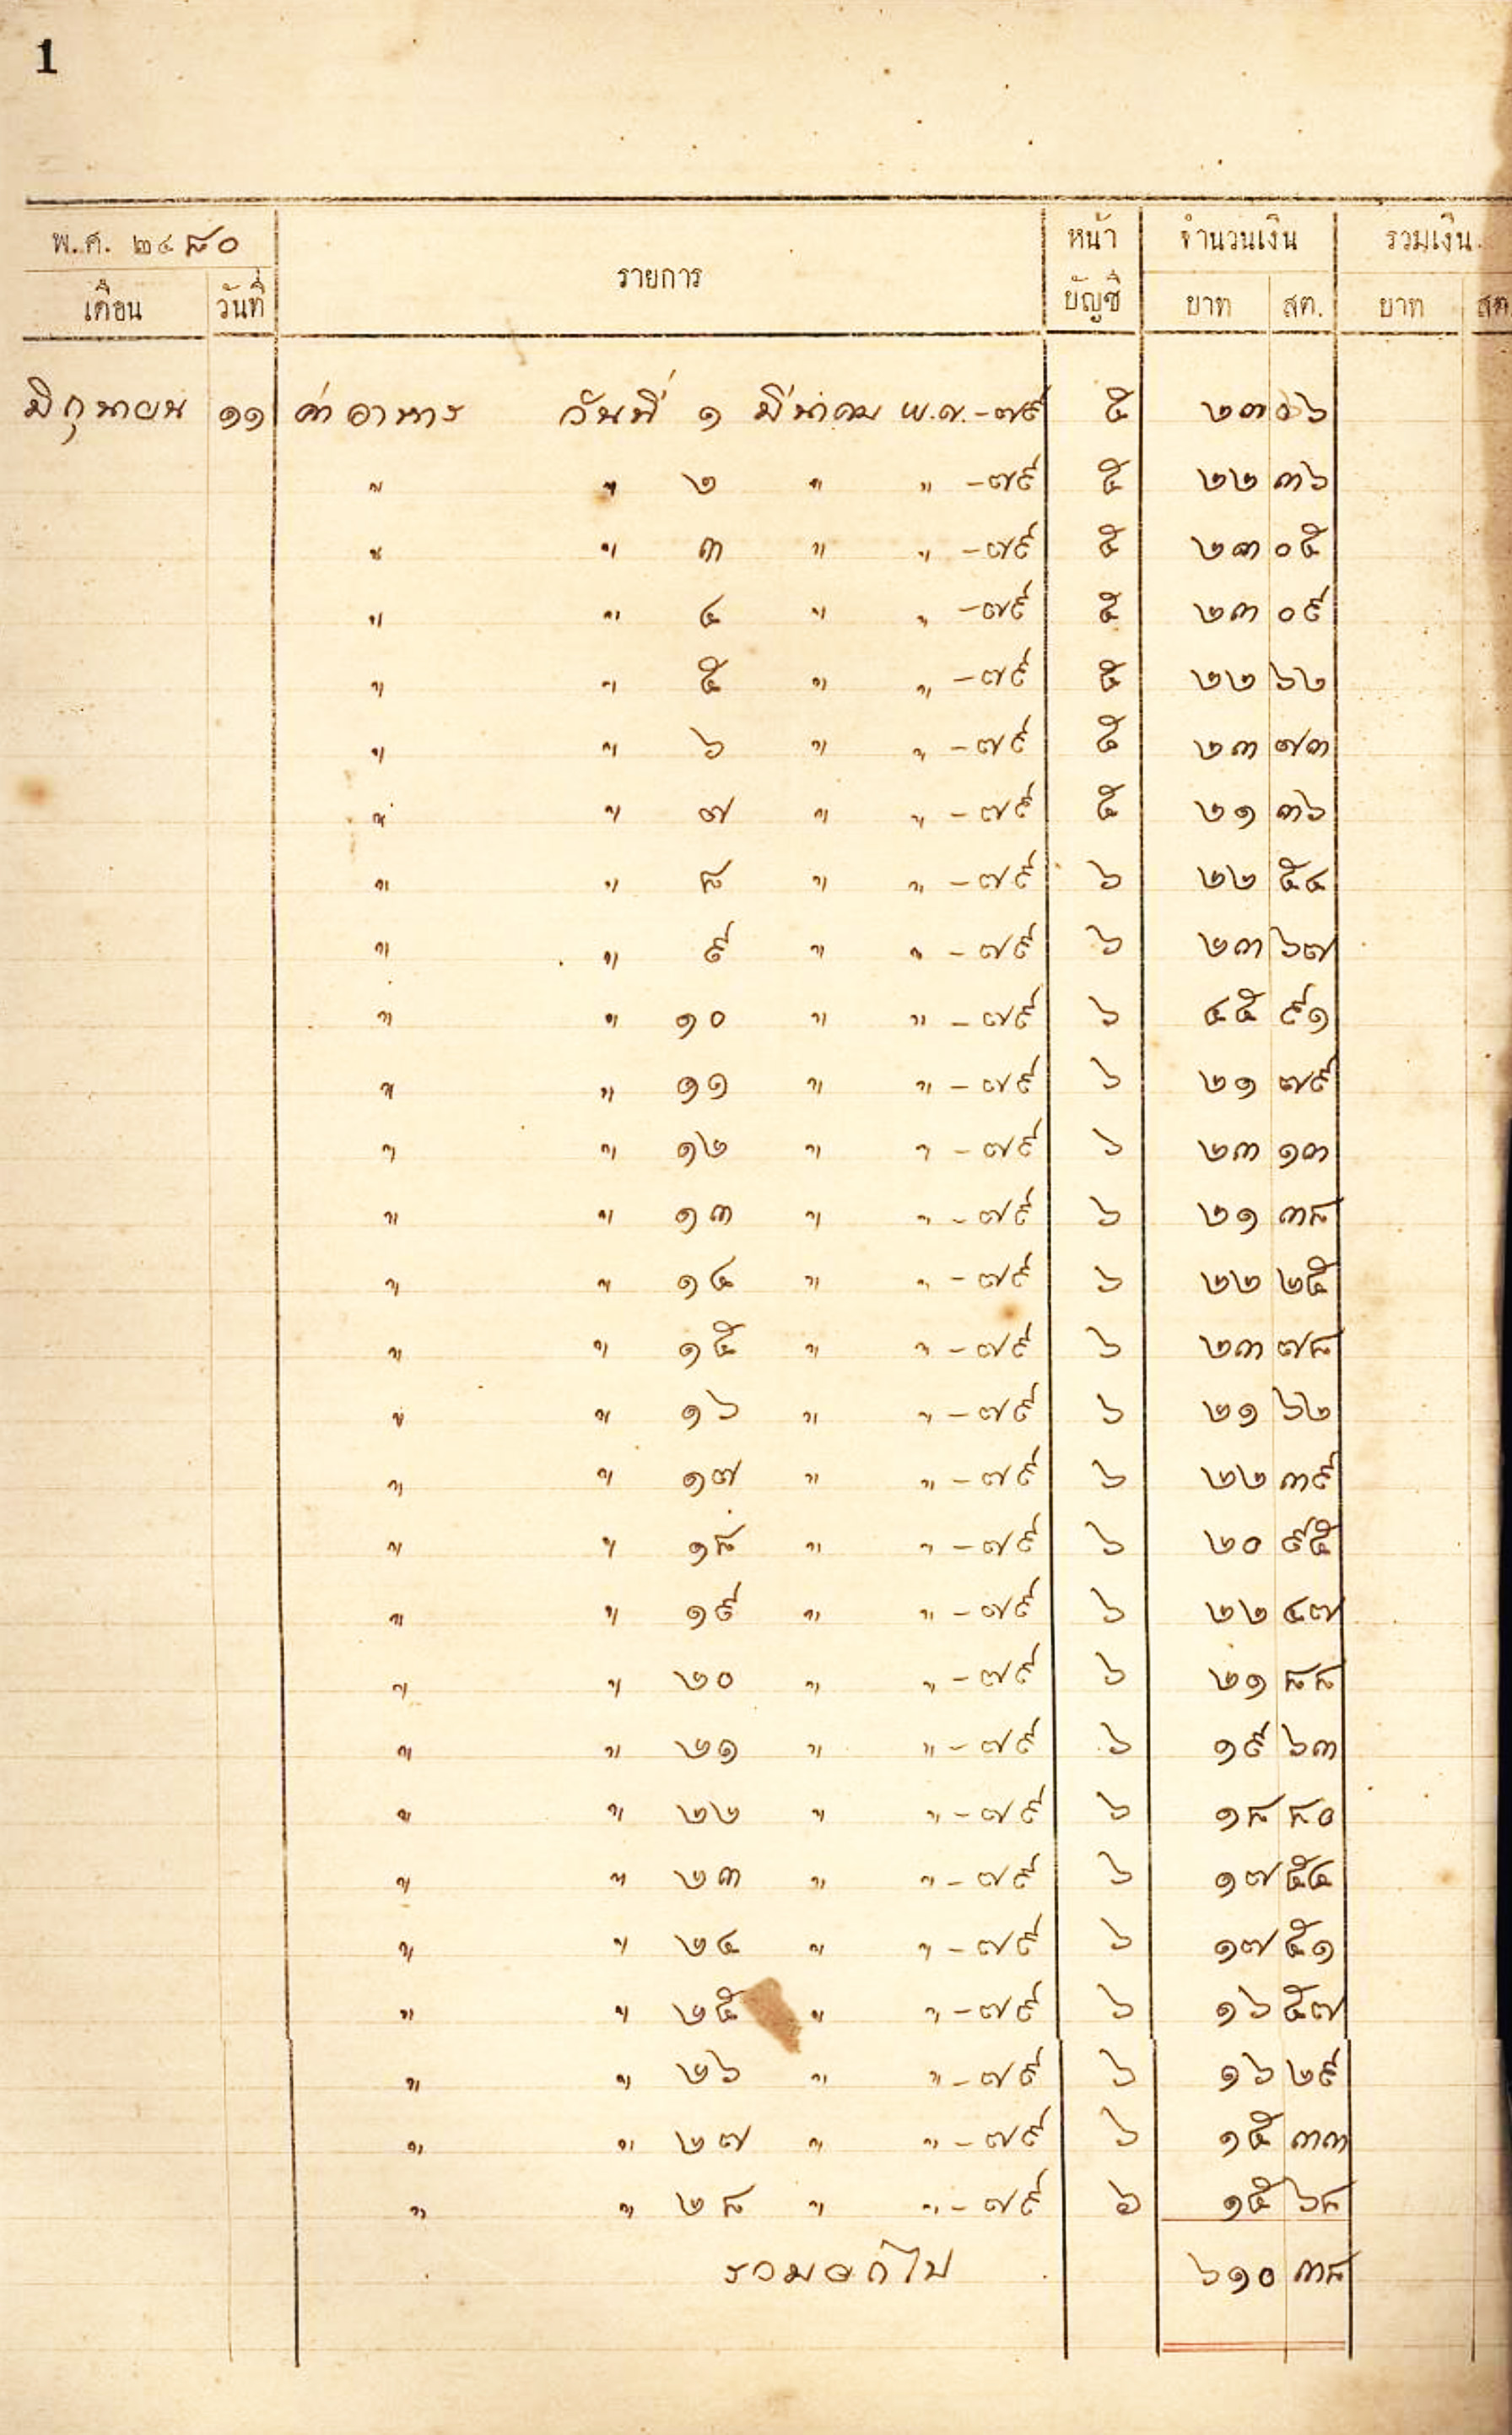 1
พ.ศ. ๒๔๘๐ รายการ หน้า จำนวนเงิน รวมเงิน.
เดือน วันที่ บัญชี บาท สต. บาท สต
มิถุนายน ๑๑ ค่าอาหาร วันที่ ๑ มีนาคม พ.ศ.-๗๙ ๕ ๒๓ ๐๖
" " ๒ " " -๗๙ ๕ ๒๒ ๓๖
" " ๓ " " -๗๙ ๕ ๒๓ ๐๕
" " ๔ " " -๗๙ ๕ ๒๓ ๐๙
" " ๕ " " -๗๙ ๕ ๒๒ ๖๒
" " ๖ " " -๗๙ ๕ ๒๓ ๗๓
" " ๗ " " -๗๙ ๕ ๒๑ ๓๖
" " ๘ " " -๗๙ ๖ ๒๒ ๕๔
" " ๙ " " -๗๙ ๖ ๒๓ ๖๗
" " ๑๐ " " -๗๙ ๖ ๔๕ ๙๑
" " ๑๑ " " -๗๙ ๖ ๒๑ ๗๙
" " ๑๒ " " -๗๙ ๖ ๒๓ ๑๓
" " ๑๓ " " -๗๙ ๖ ๒๑ ๓๘
" " ๑๔ " " -๗๙ ๖ ๒๒ ๒๕
" " ๑๕ " " -๗๙ ๖ ๒๓ ๗๘
" " ๑๖ " " -๗๙ ๖ ๒๑ ๖๒
" " ๑๗ " " -๗๙ ๖ ๒๒ ๓๙
" " ๑๘ " " -๗๙ ๖ ๒๐ ๙๕
" " ๑๙ " " -๗๙ ๖ ๒๒ ๔๗
" " ๒๐ " " -๗๙ ๖ ๒๑ ๘๘
" " ๒๑ " " -๗๙ ๖ ๑๙ ๖๓
" " ๒๒ " " -๗๙ ๖ ๑๘ ๘๐
" " ๒๓ " " -๗๙ ๖ ๑๗ ๕๔
" " ๒๔ " " -๗๙ ๖ ๑๗ ๕๑
" " ๒๕ " " -๗๙ ๖ ๑๖ ๕๗
" " ๒๖ " " -๗๙ ๖ ๑๖ ๒๙
" " ๒๗ " " -๗๙ ๖ ๑๕ ๓๓
" " ๒๘ " " -๗๙ ๖ ๑๕ ๖๘
รวมยกไป ๖๑๐ ๓๘